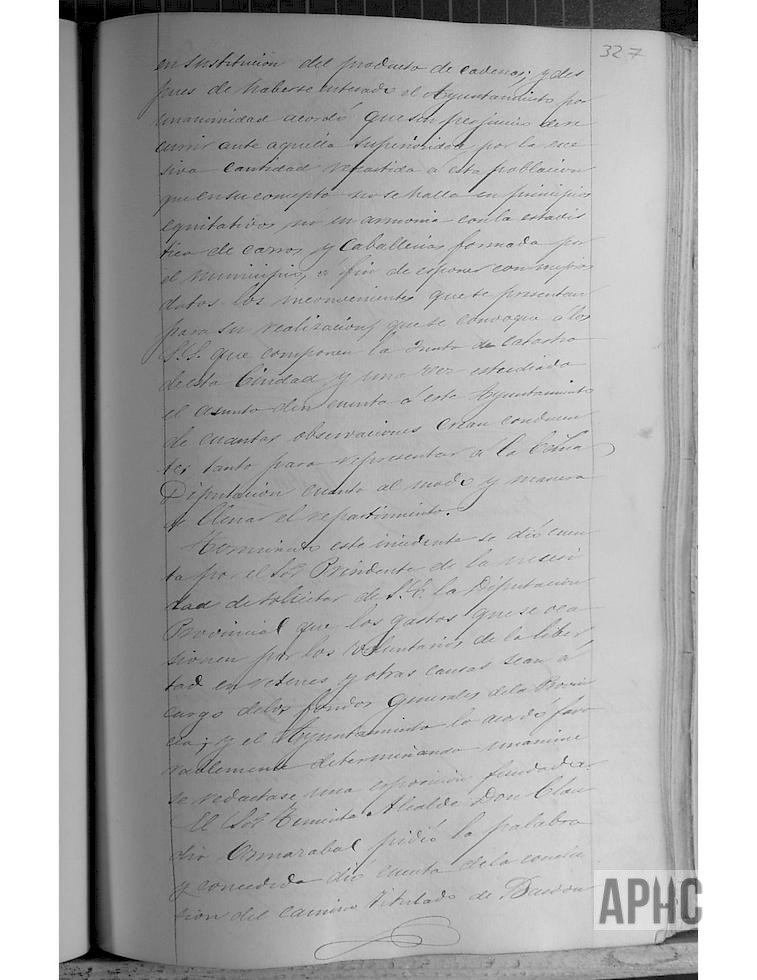 327
en sustitucion del producto de cadenas; y des
pues de haberse enterado el Ayuntamiento por
unanimidad acordó que sin perjuicio de re
currir ante aquella superioridad por la exce
siva cantidad repartida á esta poblacion
que en su concepto no se halla en principios
equitativos ni en armonia con la estadis
tica de carros y Caballerias formada por
el Municipio, á fin de esponer con mejores
datos los inconvenientes que se presentan
para su realizacion, que se convoque á los
S.S. que componen la Junta de catastro
de esta Ciudad y una vez estudiado
el asunto den cuenta á este Ayuntamiento
de cuantas observaciones crean conducen
tes tanto para representar á la Exma
Diputacion cuanto al modo y manera
de llenar el repartimiento.
Terminado este incidente se dió cuen
ta por el Sor Presidente de la necesi
dad de solicitar de S.E. la Diputacion
Provincial que los gastos que se oca
sionen por los Voluntarios de la liber
tad en retenes y otras causas sean á
cargo de los fondos generales de la Provin
cia; y el Ayuntamiento lo acordó favo
rablemente determinando unanime
se redactase una esposicion fundada.
El Sor Teniente Alcalde Don Clau
dio Armarabal pidió la palabra
y concedida dió cuenta de la conclu
sion del camino titulado de
APHC